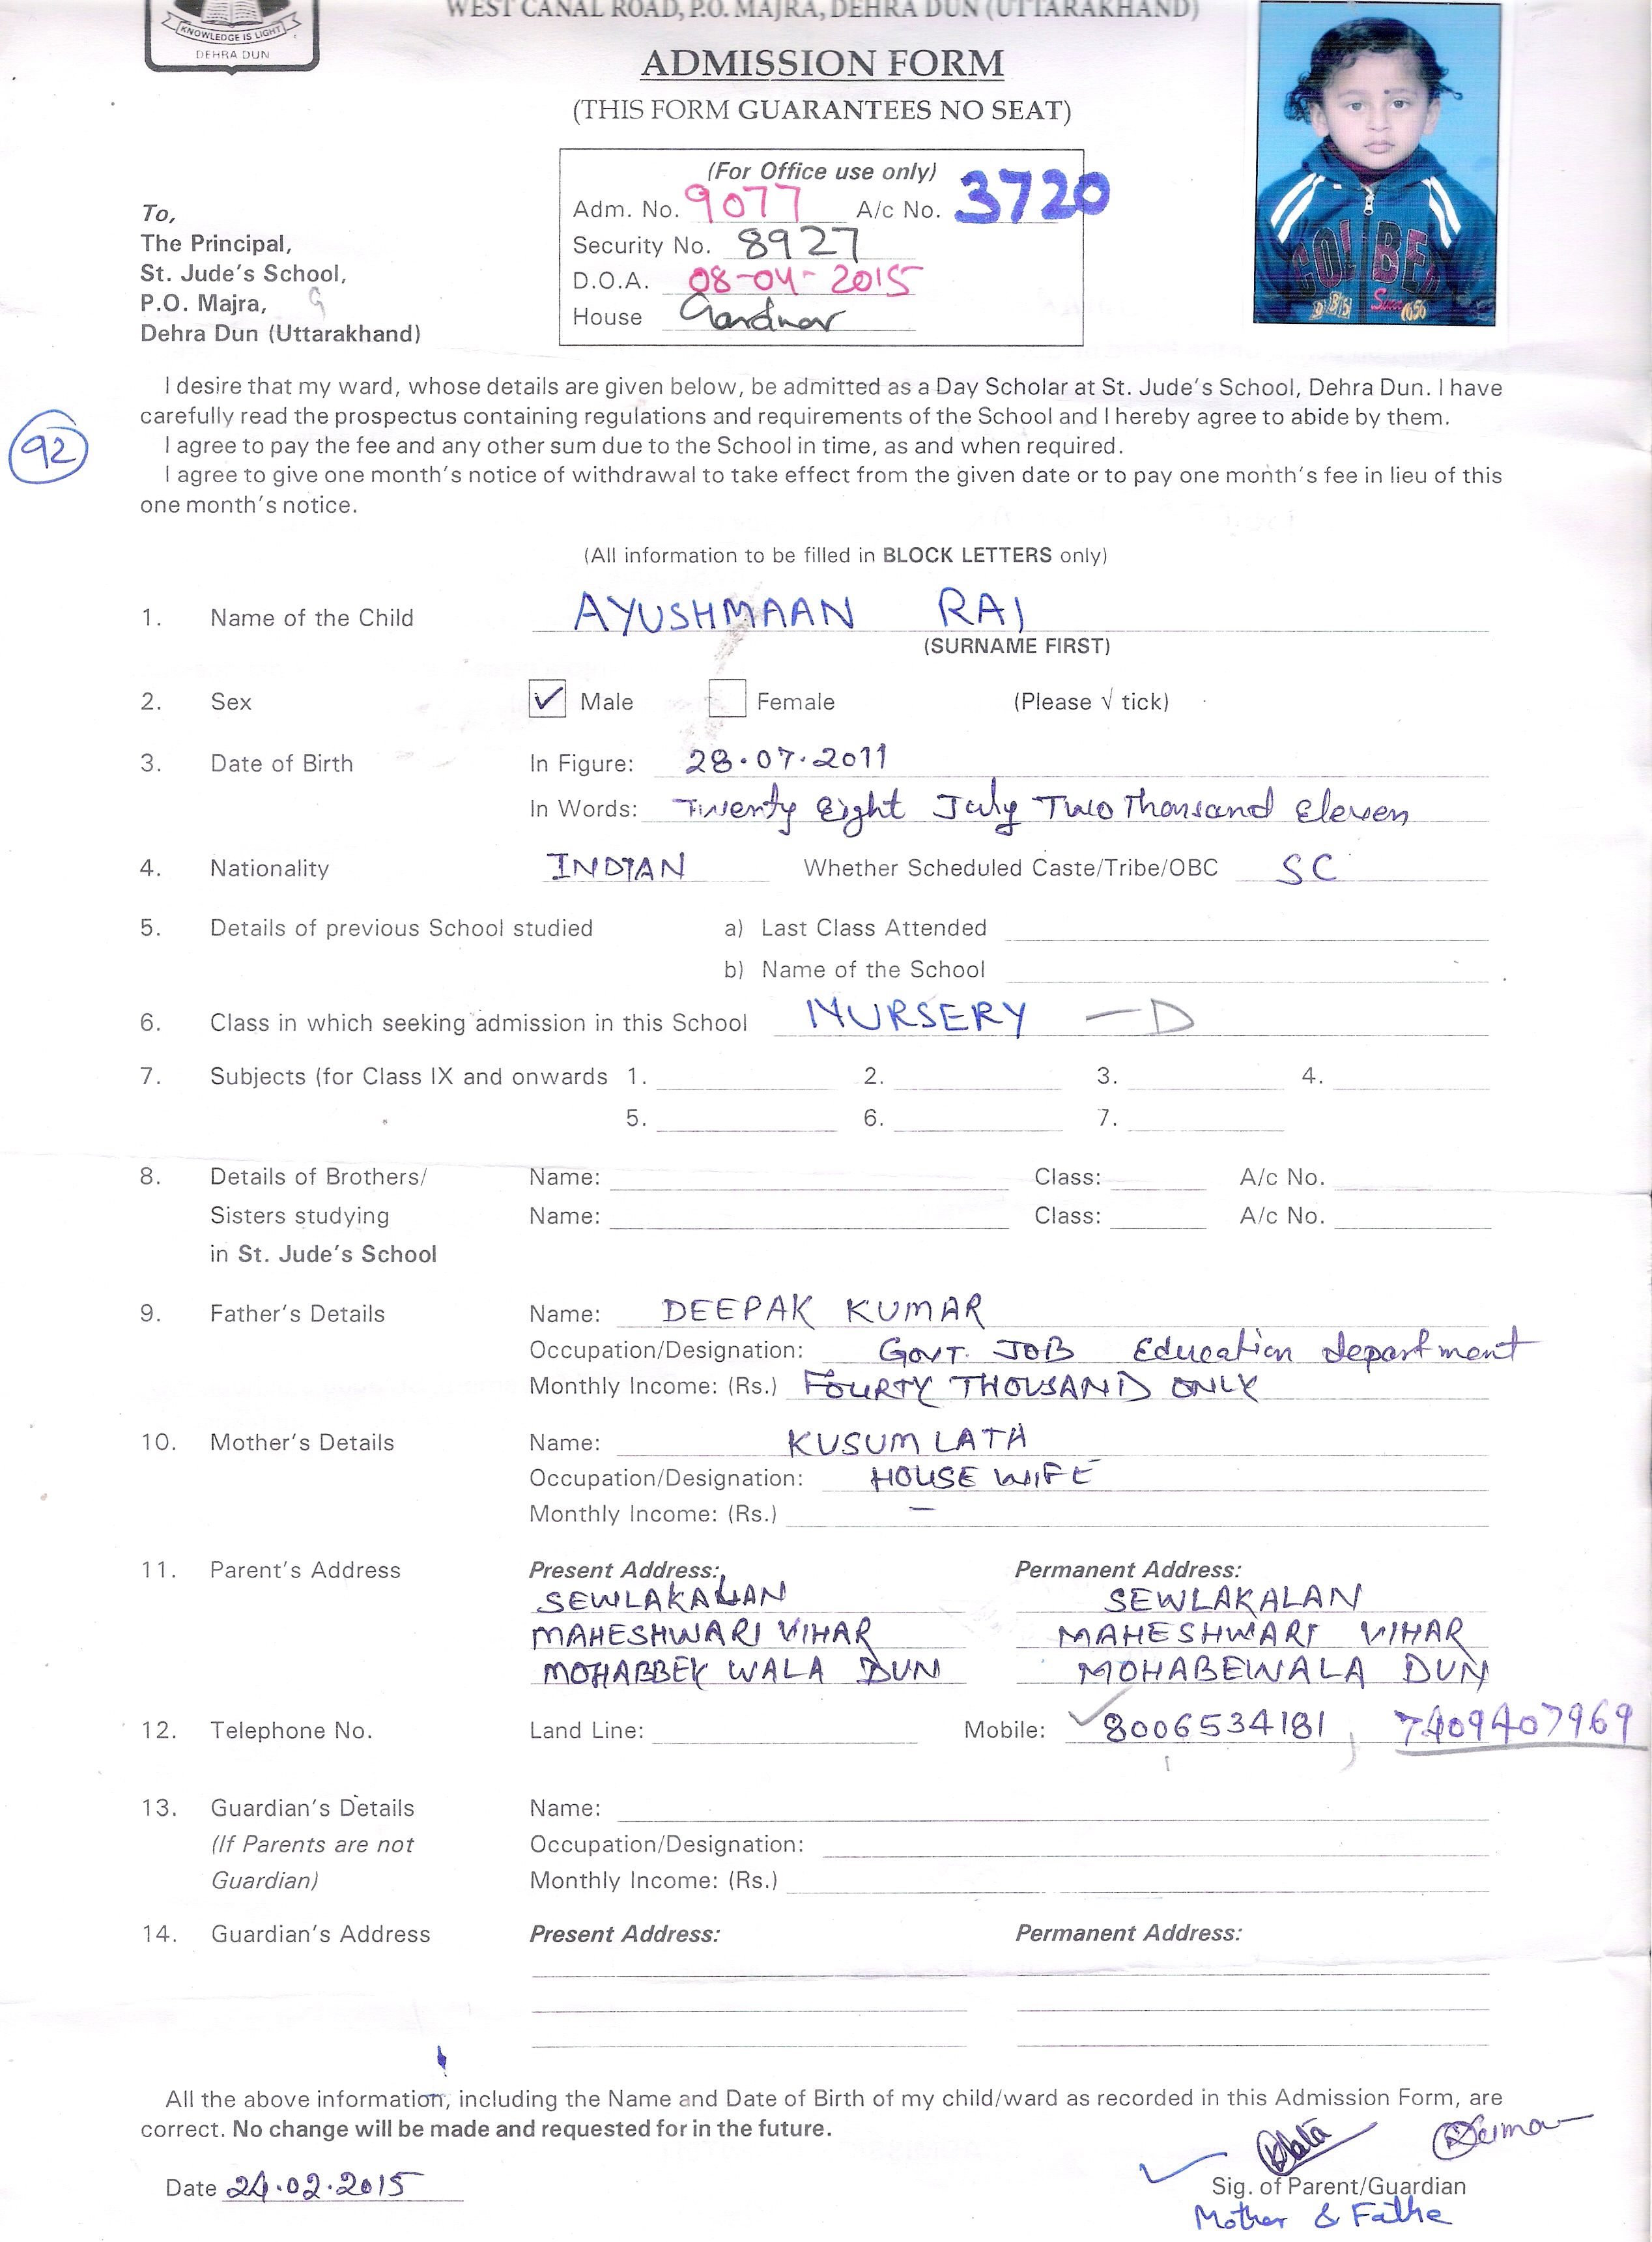 WEST CANAL ROAD, P.O. MAJRA, DEHRA DUN (UTTARAKHAND)
KNOWLEDGE IS LIGHT
DEHRA DUN
ADMISSION FORM
(THIS FORM GUARANTEES NO SEAT)
(For Office use only)
Adm. No. 9077 A/c No. 3720
Security No. 8927
D.O.A. 08-04-2015
House Gardner
To,
The Principal,
St. Jude's School,
P.O. Majra,
Dehra Dun (Uttarakhand)
I desire that my ward, whose details are given below, be admitted as a Day Scholar at St. Jude's School, Dehra Dun. I have
carefully read the prospectus containing regulations and requirements of the School and I hereby agree to abide by them.
92
I agree to pay the fee and any other sum due to the School in time, as and when required.
I agree to give one month's notice of withdrawal to take effect from the given date or to pay one month's fee in lieu of this
one month's notice.
(All information to be filled in BLOCK LETTERS only)
1. Name of the Child AYUSHMAAN RAJ
(SURNAME FIRST)
2. Sex ✓ Male Female (Please √ tick)
3. Date of Birth In Figure: 28.07.2011
In Words: Twenty Eight July Two Thousand Eleven
4. Nationality INDIAN Whether Scheduled Caste/Tribe/OBC SC
5. Details of previous School studied a) Last Class Attended
b) Name of the School
6. Class in which seeking admission in this School NURSERY - D
7. Subjects (for Class IX and onwards 1. 2. 3. 4.
5. 6. 7.
8. Details of Brothers/ Name: Class: A/c No.
Sisters studying Name: Class: A/c No.
in St. Jude's School
9. Father's Details Name: DEEPAK KUMAR
Occupation/Designation: GOVT. JOB Education department
Monthly Income: (Rs.) FOURTY THOUSAND ONLY
10. Mother's Details Name: KUSUM LATA
Occupation/Designation: HOUSE WIFE
Monthly Income: (Rs.) -
11. Parent's Address Present Address: Permanent Address:
SEWLAKALAN SEWLAKALAN
MAHESHWARI VIHAR MAHESHWARI VIHAR
MOHABBEK WALA DUN MOHABEWALA DUN
12. Telephone No. Land Line: Mobile: 8006534181, 7409407969
13. Guardian's Details Name:
(If Parents are not Occupation/Designation:
Guardian) Monthly Income: (Rs.)
14. Guardian's Address Present Address: Permanent Address:
All the above information, including the Name and Date of Birth of my child/ward as recorded in this Admission Form, are
correct. No change will be made and requested for in the future.
Date 24.02.2015
Klata Kumar
Sig. of Parent/Guardian
Mother & Fathe